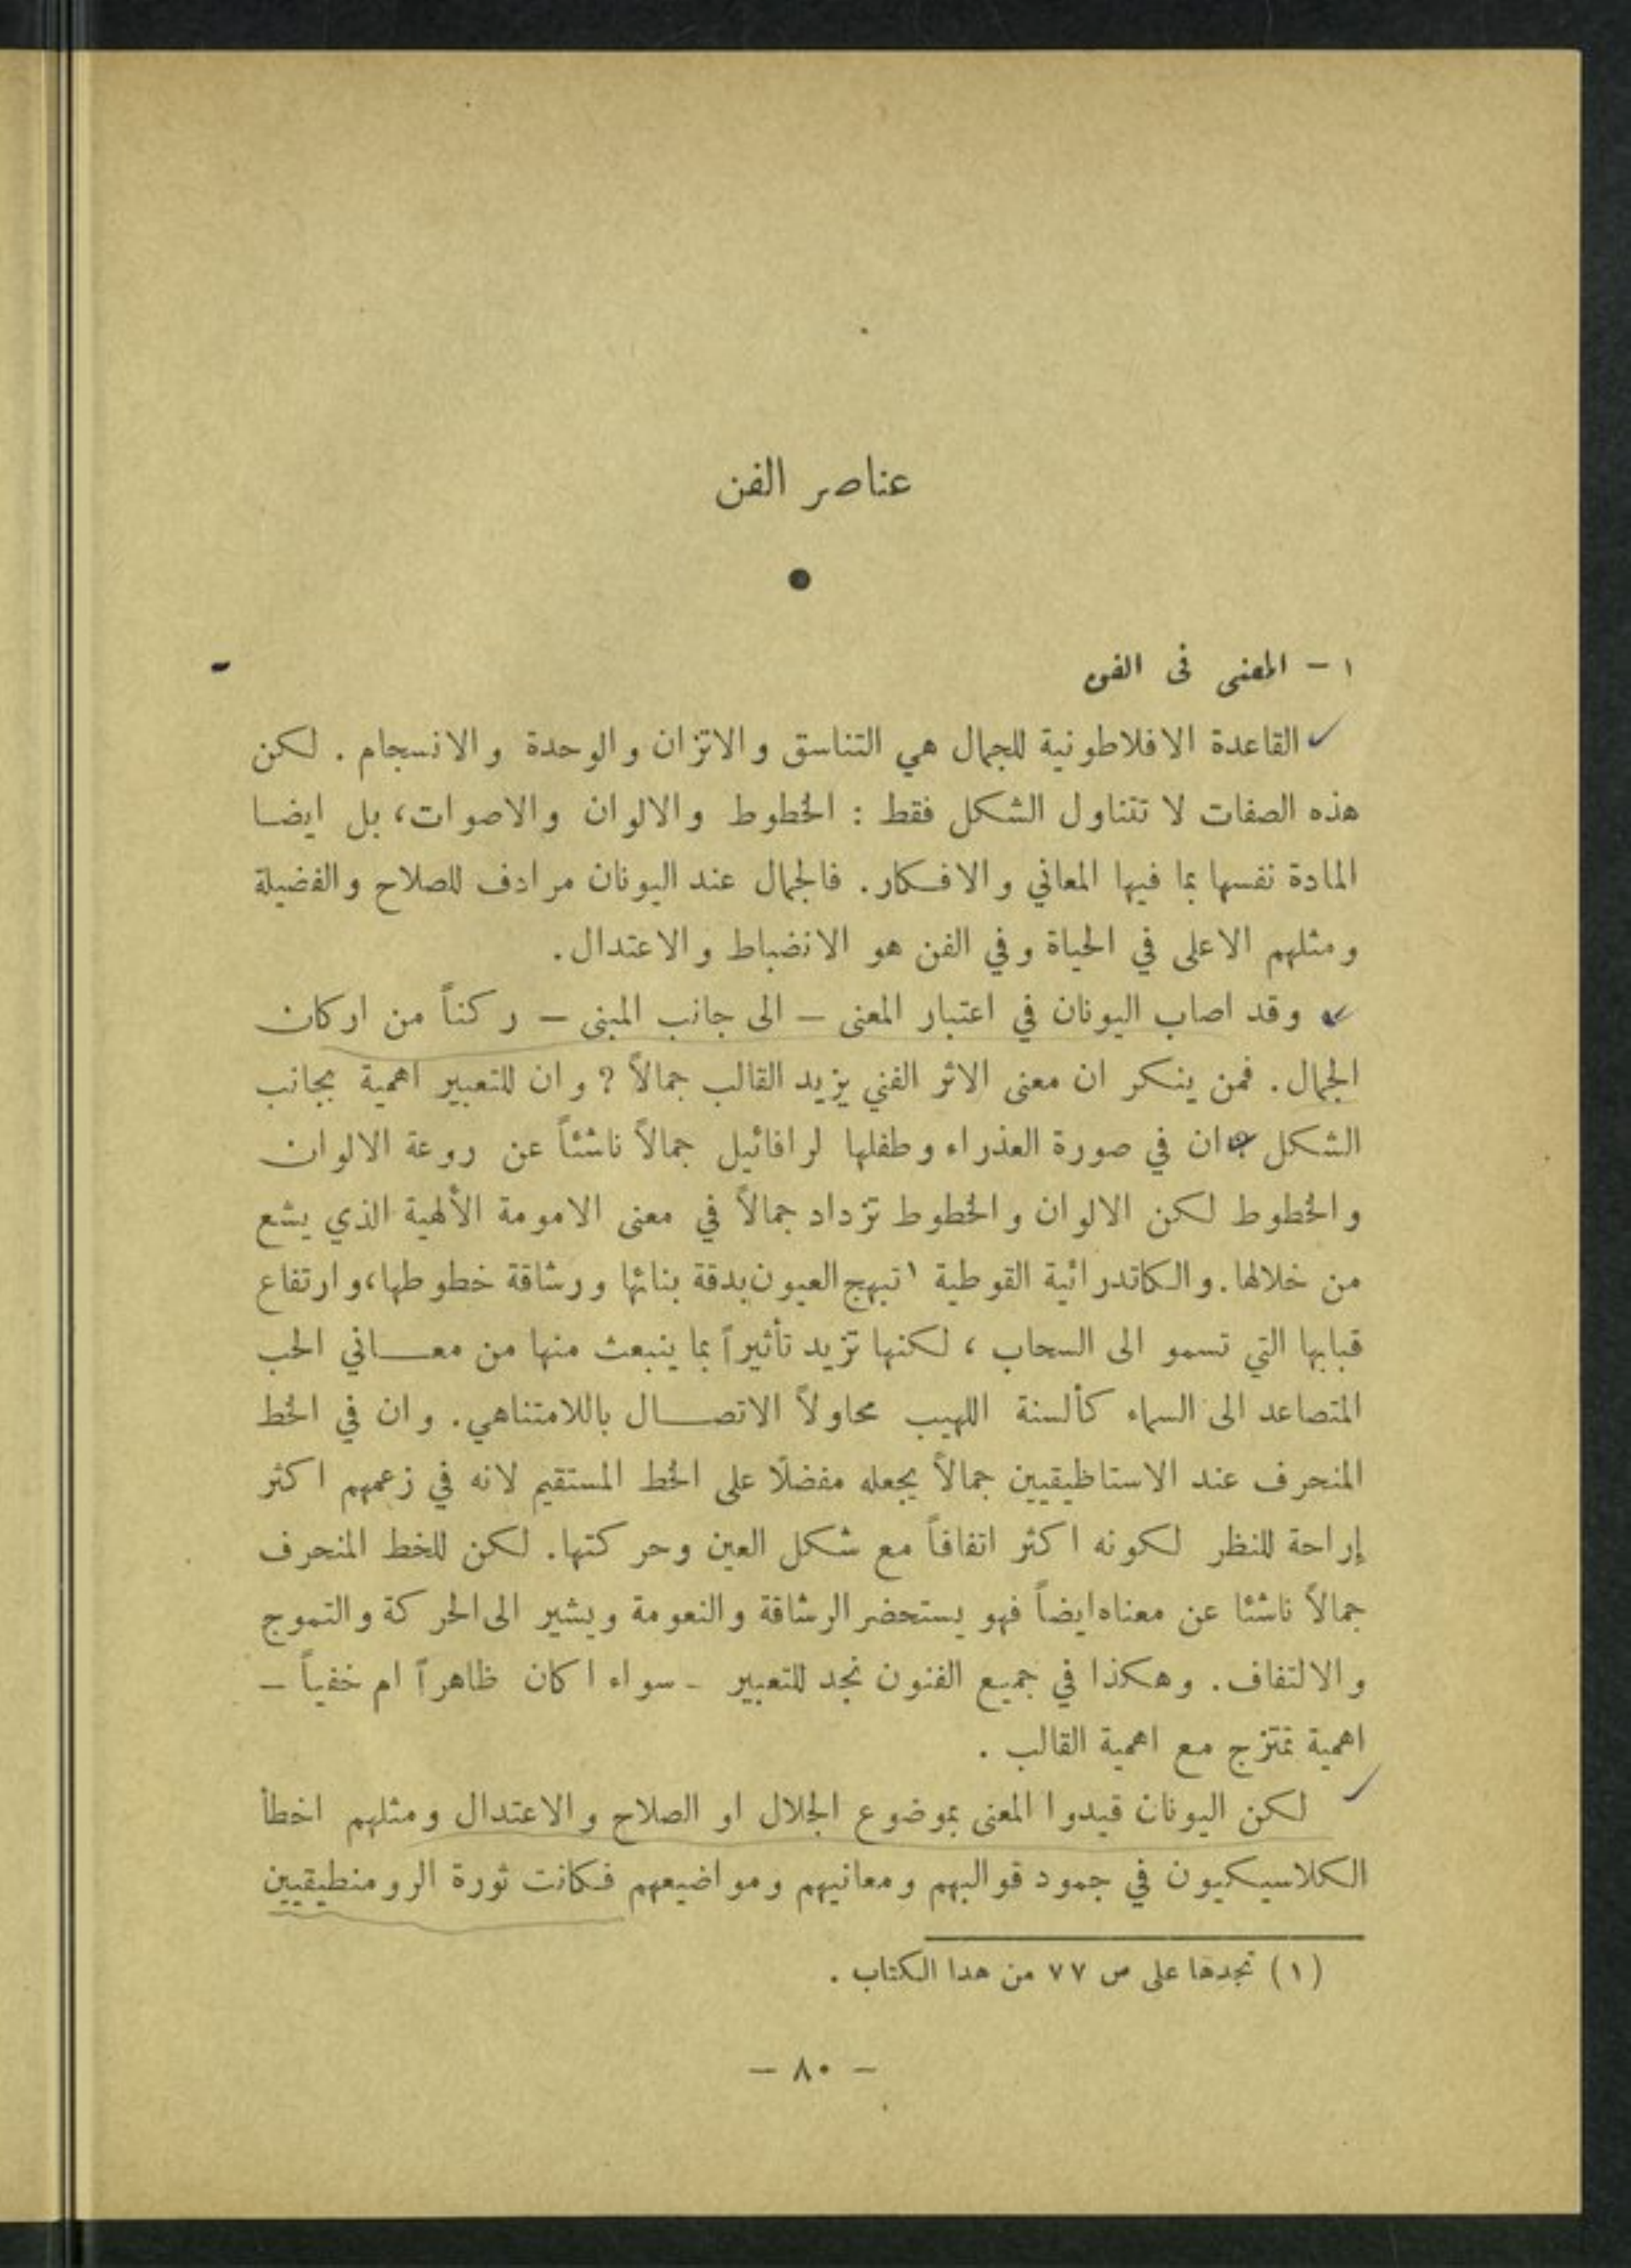 عناصر الفن
١ - المعنى في الفن
القاعدة الافلاطونية للجمال هي التناسق والاتزان والوحدة والانسجام . لكن
هذه الصفات لا تتناول الشكل فقط : الخطوط والالوان والاصوات، بل ايضا
المادة نفسها بما فيها المعاني والافكار. فالجمال عند اليونان مرادف للصلاح والفضيلة
ومثلهم الاعلى في الحياة وفي الفن هو الانضباط والاعتدال.
وقد اصاب اليونان في اعتبار المعنى – الى جانب المبنى – ركناً من اركان
الجمال. فمن ينكر ان معنى الاثر الفني يزيد القالب جمالاً ? وان للتعبير اهمية بجانب
الشكل ? ان في صورة العذراء وطفلها لرافائيل جمالاً ناشئاً عن روعة الالوان
والخطوط لكن الالوان والخطوط تزداد جمالاً في معنى الامومة الألهية الذي يشع
من خلالها. والكاتدرائية القوطية ١ تبهج العيون بدقة بنائها ورشاقة خطوطها، وارتفاع
قبابها التي تسمو الى السحاب ، لكنها تزيد تأثيراً بما ينبعث منها من معــاني الحب
المتصاعد الى السماء كألسنة اللهيب محاولاً الاتصــال باللامتناهي. وان في الخط
المنحرف عند الاستاطيقيين جمالاً يجعله مفضلًا على الخط المستقيم لانه في زعمهم اكثر
إراحة للنظر لكونه اكثر اتفاقاً مع شكل العين وحركتها. لكن للخط المنحرف
جمالاً ناشئا عن معناه ايضاً فهو يستحضر الرشاقة والنعومة ويشير الى الحركة والتموج
والالتفاف. وهكذا في جميع الفنون نجد للتعبير - سواء اكان ظاهراً ام خفياً –
اهمية تمتزج مع اهمية القالب .
لكن اليونان قيدوا المعنى بموضوع الجلال او الصلاح والاعتدال ومثلهم اخطأ
الكلاسيكيون في جمود قوالبهم ومعانيهم ومواضيعهم فكانت ثورة الرومنطيقيين
(١) تجدها على ص ٧٧ من هدا الكتاب .
– ٨٠ –